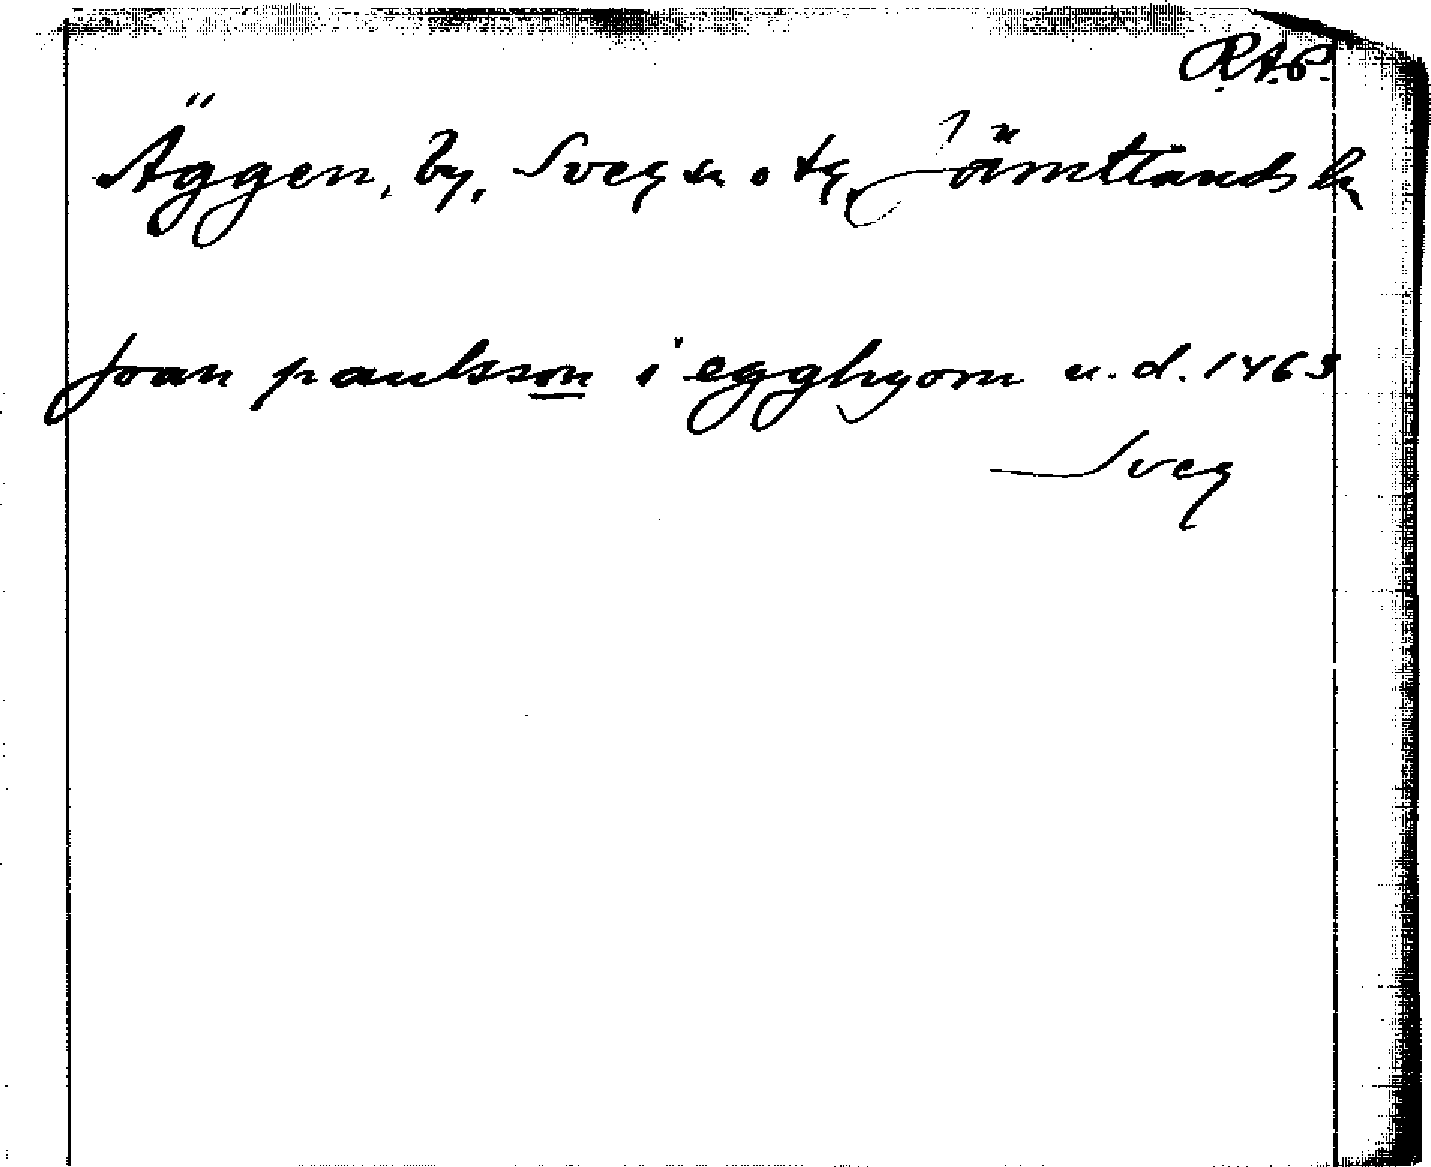 RAP.
Äggen, by, Sveg sn o tg, Jämtlands l.
joan paulsson i egghyom u. d. 1463
Sveg